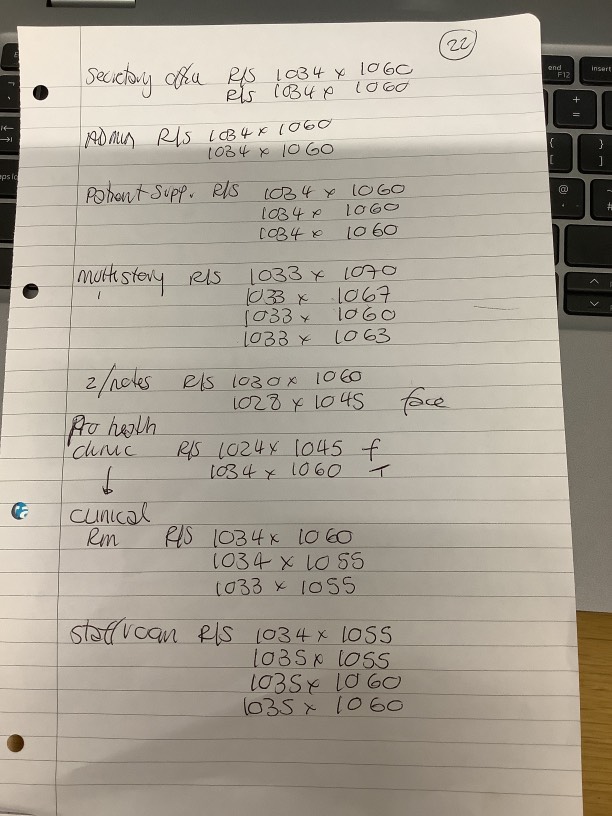 22
Secretary office R/S 1034 x 1060
R/S 1034 x 1060
ADMIN R/S 1034 x 1060
1034 x 1060
Patient Supp. R/S 1034 x 1060
1034 x 1060
1034 x 1060
R/S 1033 x 1070
1033 x 1067
1033 x 1060
1033 x 1063
2/notes R/S 1030 x 1060
1028 x 1045 face
Pro health
clinic R/S 1024 x 1045 f
1034 x 1060 T
clinical
Rm R/S 1034 x 1060
1034 x 1055
1033 x 1055
Staff/room R/S 1034 x 1055
1035 x 1055
1035 x 1060
1035 x 1060
end
F12
insert